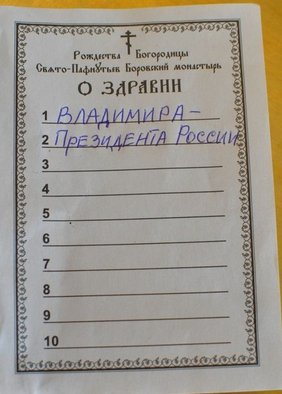 Рождества Богородицы
Свято-Пафнутьев Боровский монастырь
О ЗДРАВИИ
1 ВЛАДИМИРА-
2 ПРЕЗИДЕНТА РОССИИ
3
4
5
6
7
8
9
10